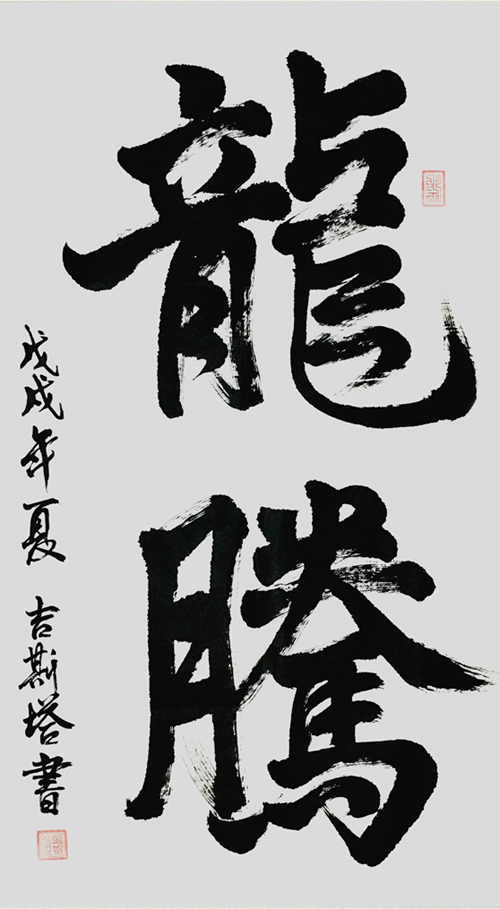 龍騰
戊戌年夏 吉斯塔書